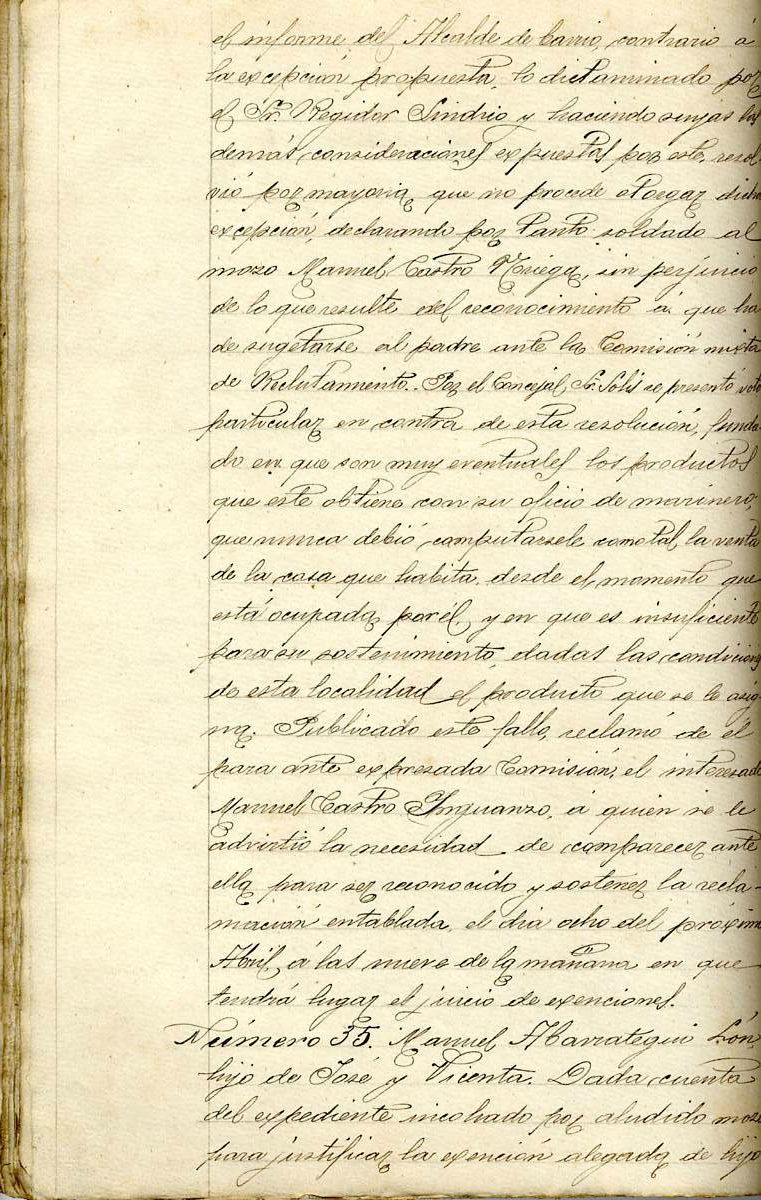 el informe del Alcalde de barrio, contrario á
la excepción propuesta, lo dictaminado por
el Sr. Regidor Síndico y haciendo suyas las
demás consideraciones expuestas por este, resol-
vió por mayoria, que no procede otorgar dicha
excepción, declarando por tanto soldado al
mozo Manuel Castro Noriega, sin perjuicio
de lo que resulte del reconocimiento á que ha
de sugetarse el padre ante la Comisión mixta
de Reclutamiento. Por el Concejal Sr. Solis se presentó voto
particular en contra de esta resolución, funda-
do en que son muy eventuales los productos
que este obtiene con su oficio de marinero;
que nunca debió computarsele como tal, la venta
de la casa que habita, desde el momento que
está ocupada por él, y en que es insuficiente
para su sostenimiento, dadas las condiciones
de esta localidad el producto que se le asig-
na. Publicado este fallo, reclamó de él
para ante expresada Comisión, el interesado
Manuel Castro Inguanzo, á quien se le
advirtió la necesidad de comparecer ante
ella para ser reconocido y sostener la recla-
mación entablada, el dia ocho del próximo
Abril, á las nueve de la mañana en que
tendrá lugar el juicio de exenciones.
Número 35. Manuel Abarrategui
hijo de José y Vicenta. Dada cuenta
del expediente incohado por aludido mozo
para justificar la exención alegada de hijo